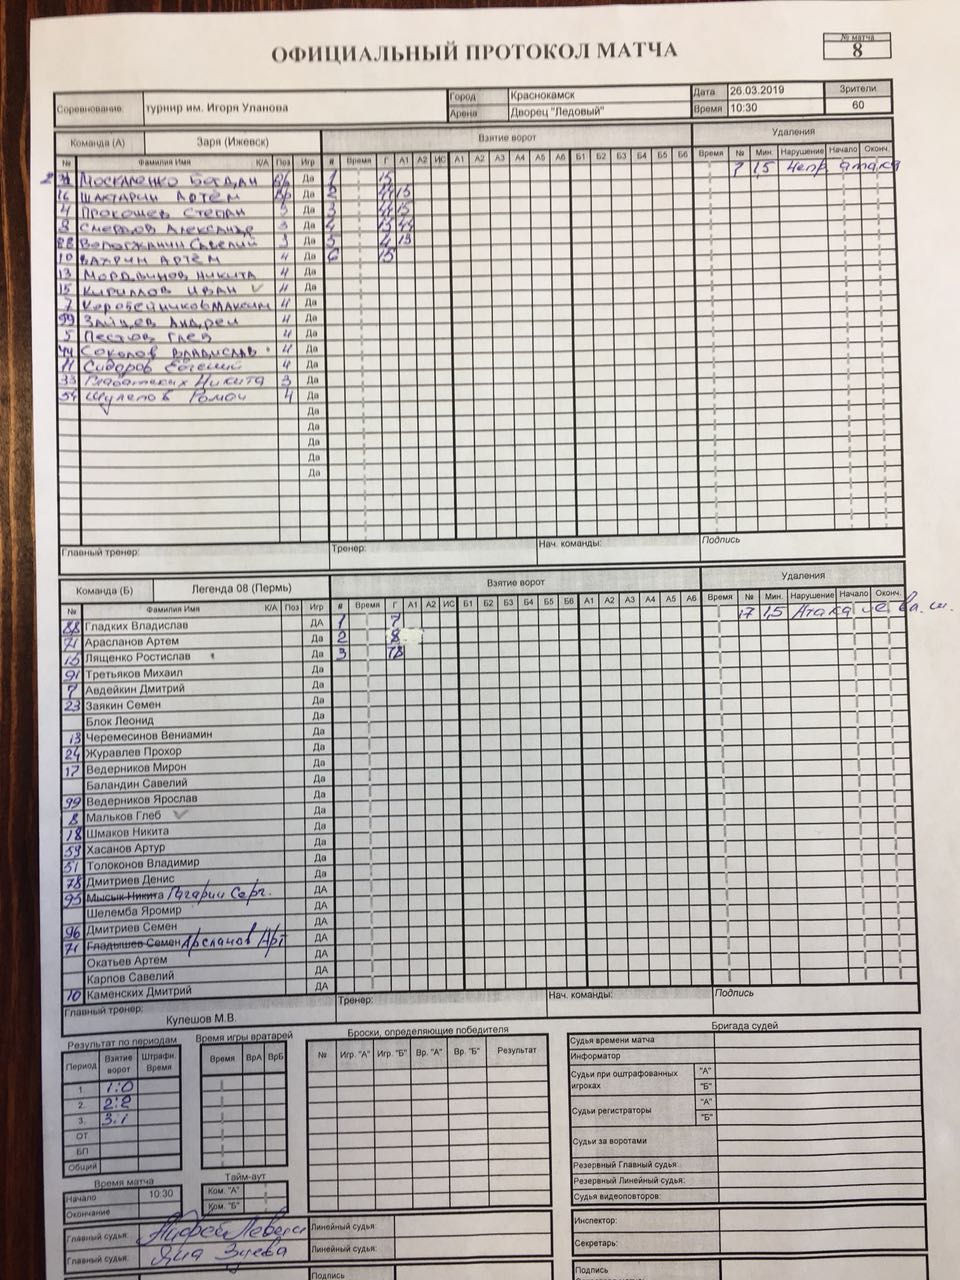 ОФИЦИАЛЬНЫЙ ПРОТОКОЛ МАТЧА
№ матча
8
Соревнование турнир им. Игоря Уланова Город Краснокамск Дата 26.03.2019 Зрители
Арена Дворец "Ледовый" Время 10:30 60
Команда (А) Заря (Ижевск) Взятие ворот Удаления
№ Фамилия Имя К/А Поз Игр # Время Г А1 А2 ИС А1 А2 А3 А4 А5 А6 Б1 Б2 Б3 Б4 Б5 Б6 Время № Мин. Нарушение Начало Оконч.
Москаленко Богдан Вр Да 1 15 7 1,5 Непр. атака
16 Шактарин Артём Вр Да 2 44 15
4 Прокошев Степан З Да 3 44 15
8 Смердов Александр З Да 4 15 44
88 Вологжанин Савелий З Да 5 4 15
10 Вахрин Артём Ч Да 6 15
13 Мордвинов Никита Ч Да
15 Кириллов Иван Ч Да
7 Коробейников Максим Ч Да
99 Зайцев Андрей Ч Да
5 Пестов Глеб Ч Да
44 Соколов Владислав Ч Да
11 Сидоров Евгений Ч Да
33 Никита З Да
54 Шулепов Роман Ч Да
Да
Да
Да
Да
Да
Главный тренер: Тренер: Нач. команды: Подпись
Команда (Б) Легенда 08 (Пермь) Взятие ворот Удаления
№ Фамилия Имя К/А Поз Игр # Время Г А1 А2 ИС Б1 Б2 Б3 Б4 Б5 Б6 А1 А2 А3 А4 А5 А6 Время № Мин. Нарушение Начало Оконч.
88 Гладких Владислав ДА 1 7 17 1,5 Атака
71 Арасланов Артем Да 2 8
15 Лященко Ростислав Да 3 78
91 Третьяков Михаил Да
7 Авдейкин Дмитрий Да
23 Заякин Семен Да
Блок Леонид Да
13 Черемесинов Вениамин Да
24 Журавлев Прохор Да
17 Ведерников Мирон Да
Баландин Савелий Да
99 Ведерников Ярослав Да
8 Мальков Глеб Да
18 Шмаков Никита Да
59 Хасанов Артур Да
51 Толоконов Владимир Да
78 Дмитриев Денис Да
95 Мысык Никита Гагарин Серг. ДА
Шелемба Яромир ДА
96 Дмитриев Семен ДА
71 Гладышев Семен Арсланов Арт ДА
Окатьев Артем ДА
Карпов Савелий ДА
70 Каменских Дмитрий ДА
Главный тренер: Кулешов М.В. Тренер: Нач. команды: Подпись
Результат по периодам Время игры вратарей Броски, определяющие победителя Бригада судей
Период Взятие ворот Штрафн. Время Время ВрА ВрБ № Игр. "А" Игр. "Б" Вр. "А" Вр. "Б" Результат
1. 1:0
2. 2:2
3. 3:1
ОТ
БП
Общий
Судья времени матча
Информатор
Судьи при оштрафованных игроках "А" "Б"
Судьи регистраторы "А" "Б"
Судьи за воротами
Резервный Главный судья:
Резервный Линейный судья:
Судья видеоповторов:
Время матча Тайм-аут
Начало 10:30 Ком. "А"
Окончание Ком. "Б"
Главный судья: Линейный судья: Инспектор:
Главный судья: Яна Зуева Линейный судья: Секретарь:
Подпись Подпись